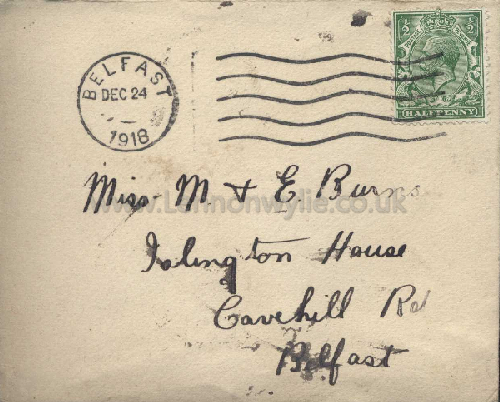 BELFAST
DEC 24
1918
HALFPENNY
Miss M & E. Burns
www.Lennonwylie.co.uk
Islington House
Cavehill Rd
Belfast